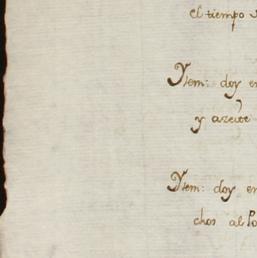 el tiempo
Ytem: doy en
y azeite
Ytem: doy en
chos al Po